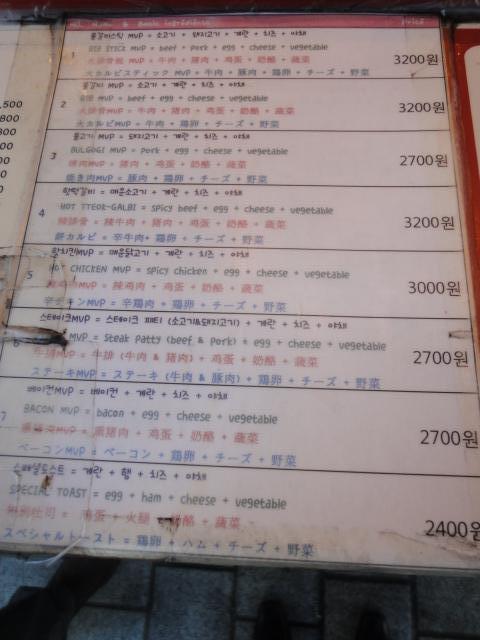 Menu Name & Main ingredience Price
불갈비스틱 MVP = 소고기 + 돼지고기 + 계란 + 치즈 + 야채
1 RIB STICK MVP = beef + pork + egg + cheese + vegetable 3200원
火排骨棍 MVP = 牛肉 + 猪肉 + 鸡蛋 + 奶酪 + 蔬菜
火カルビスティック MVP = 牛肉 + 豚肉 + 鶏卵 + チーズ + 野菜
불갈비 MVP = 소고기 + 계란 + 치즈 + 야채
,500
2 RIB MVP = beef + egg + cheese + vegetable 3200원
800
火排骨MVP = 牛肉 + 鸡蛋 + 奶酪 + 蔬菜
火カルビMVP = 牛肉 + 鶏卵 + チーズ + 野菜
불고기 MVP = 돼지고기 + 계란 + 치즈 + 야채
3 BULGOGI MVP = pork + egg + cheese + vegetable 2700원
烤肉MVP = 猪肉 + 鸡蛋 + 奶酪 + 蔬菜
焼き肉MVP = 豚肉 + 鶏卵 + チーズ + 野菜
핫떡갈비 = 매운소고기 + 계란 + 치즈 + 야채
4 HOT TTEOK-GALBI = spicy beef + egg + cheese + vegetable 3200원
辣排骨 = 辣牛肉 + 猪肉 + 鸡蛋 + 奶酪 + 蔬菜
餅カルビ = 辛牛肉+ 鶏卵 + チーズ + 野菜
핫치킨MVP = 매운닭고기 + 계란 + 치즈 + 야채
5 HOT CHICKEN MVP = spicy chicken + egg + cheese + vegetable 3000원
辣鸡肉MVP = 辣鸡肉 + 鸡蛋 + 奶酪 + 蔬菜
辛チキンMVP = 辛鶏肉 + 鶏卵 + チーズ + 野菜
스테이크MVP = 스테이크 패티 (소고기&돼지고기) + 계란 + 치즈 + 야채
6 MVP = Steak patty (beef & pork) + egg + cheese + vegetable 2700원
牛排MVP = 牛排 (牛肉 & 猪肉) + 鸡蛋 + 奶酪 + 蔬菜
ステーキMVP = ステーキ (牛肉 & 豚肉) + 鶏卵 + チーズ + 野菜
베이컨MVP = 베이컨 + 계란 + 치즈 + 야채
7 BACON MVP = bacon + egg + cheese + vegetable 2700원
熏猪肉MVP = 熏猪肉 + 鸡蛋 + 奶酪 + 蔬菜
ベーコンMVP = ベーコン + 鶏卵 + チーズ + 野菜
스페셜토스트 = 계란 + 햄 + 치즈 + 야채
SPECIAL TOAST = egg + ham + cheese + vegetable 2400원
特別吐司 = 鸡蛋 + 火腿 + 奶酪 + 蔬菜
スペシャルトースト = 鶏卵 + ハム + チーズ + 野菜